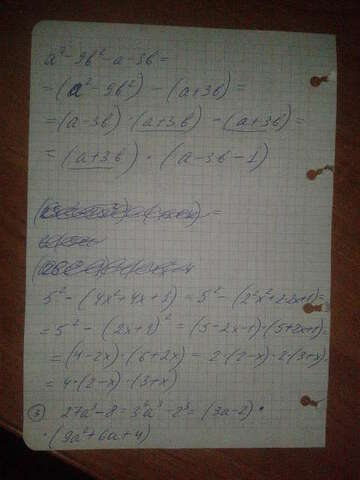 a² - 9b² - a - 3b =
= (a² - 9b²) - (a + 3b) =
= (a - 3b) · (a + 3b) - (a + 3b) =
= (a + 3b) · (a - 3b - 1)
5² - (4x² + 4x + 1) = 5² - (2²x² + 2·2x + 1) =
= 5² - (2x + 1)² = (5 - 2x - 1) · (5 + 2x + 1) =
= (4 - 2x) · (6 + 2x) = 2 · (2 - x) · 2 · (3 + x) =
= 4 · (2 - x) · (3 + x)
③ 27a³ - 8 = 3³a³ - 2³ = (3a - 2) ·
· (9a² + 6a + 4)